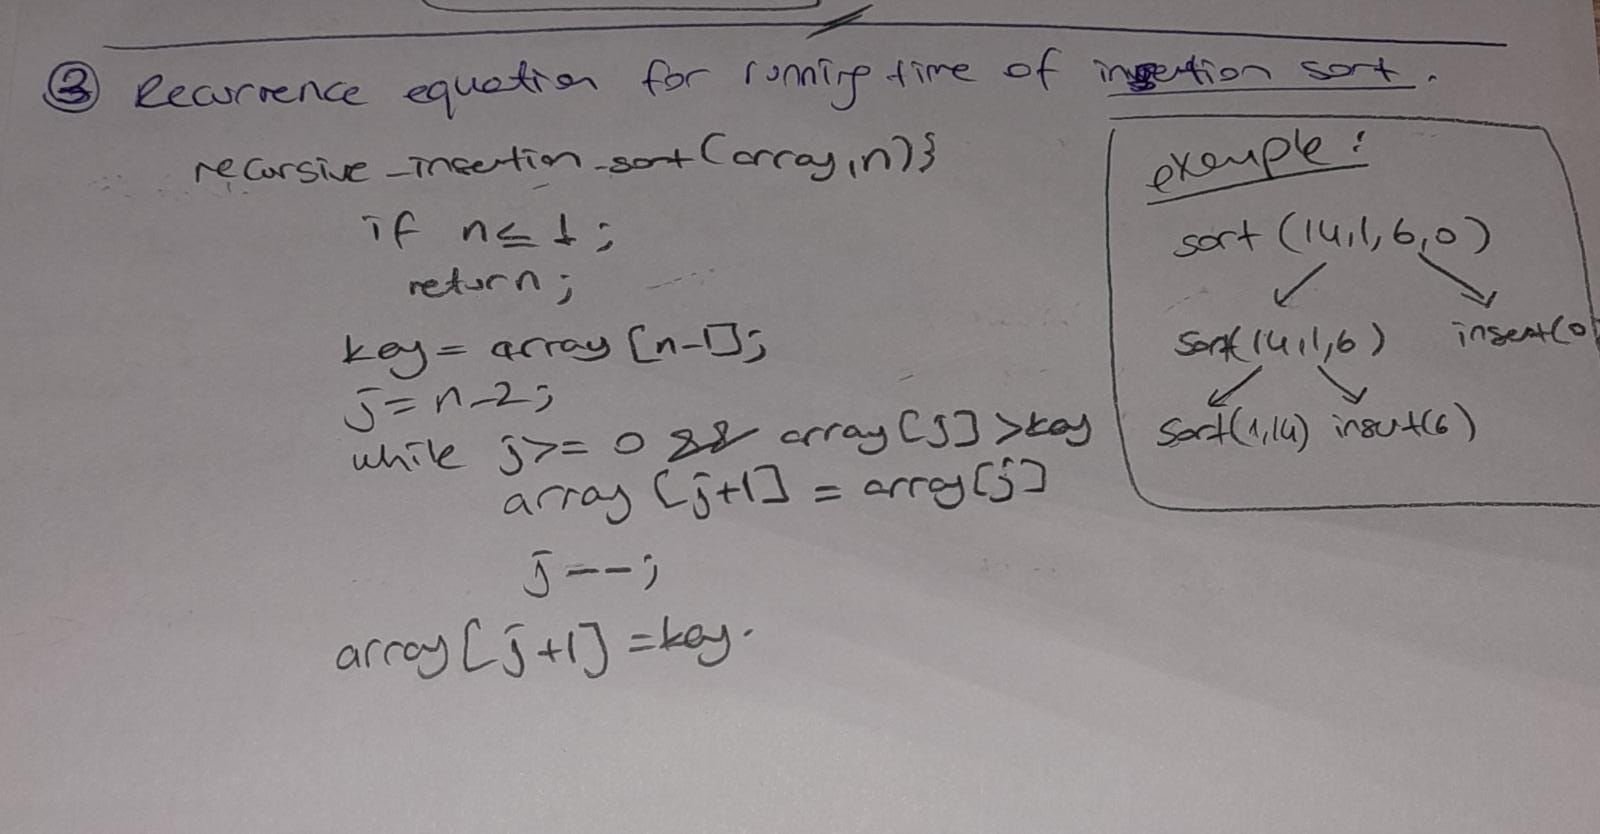 3 Recurrence equation for running time of insertion sort.
recursive-insertion-sort(array,n)}
if n≤1;
return;
key = array[n-1];
j=n-2;
while j>=0 && array[j]>key
array[j+1] = array[j]
j--;
array[j+1] = key.
example:
sort (14,1,6,0)
sort(14,1,6) insert(0)
sort(1,14) insert(6)